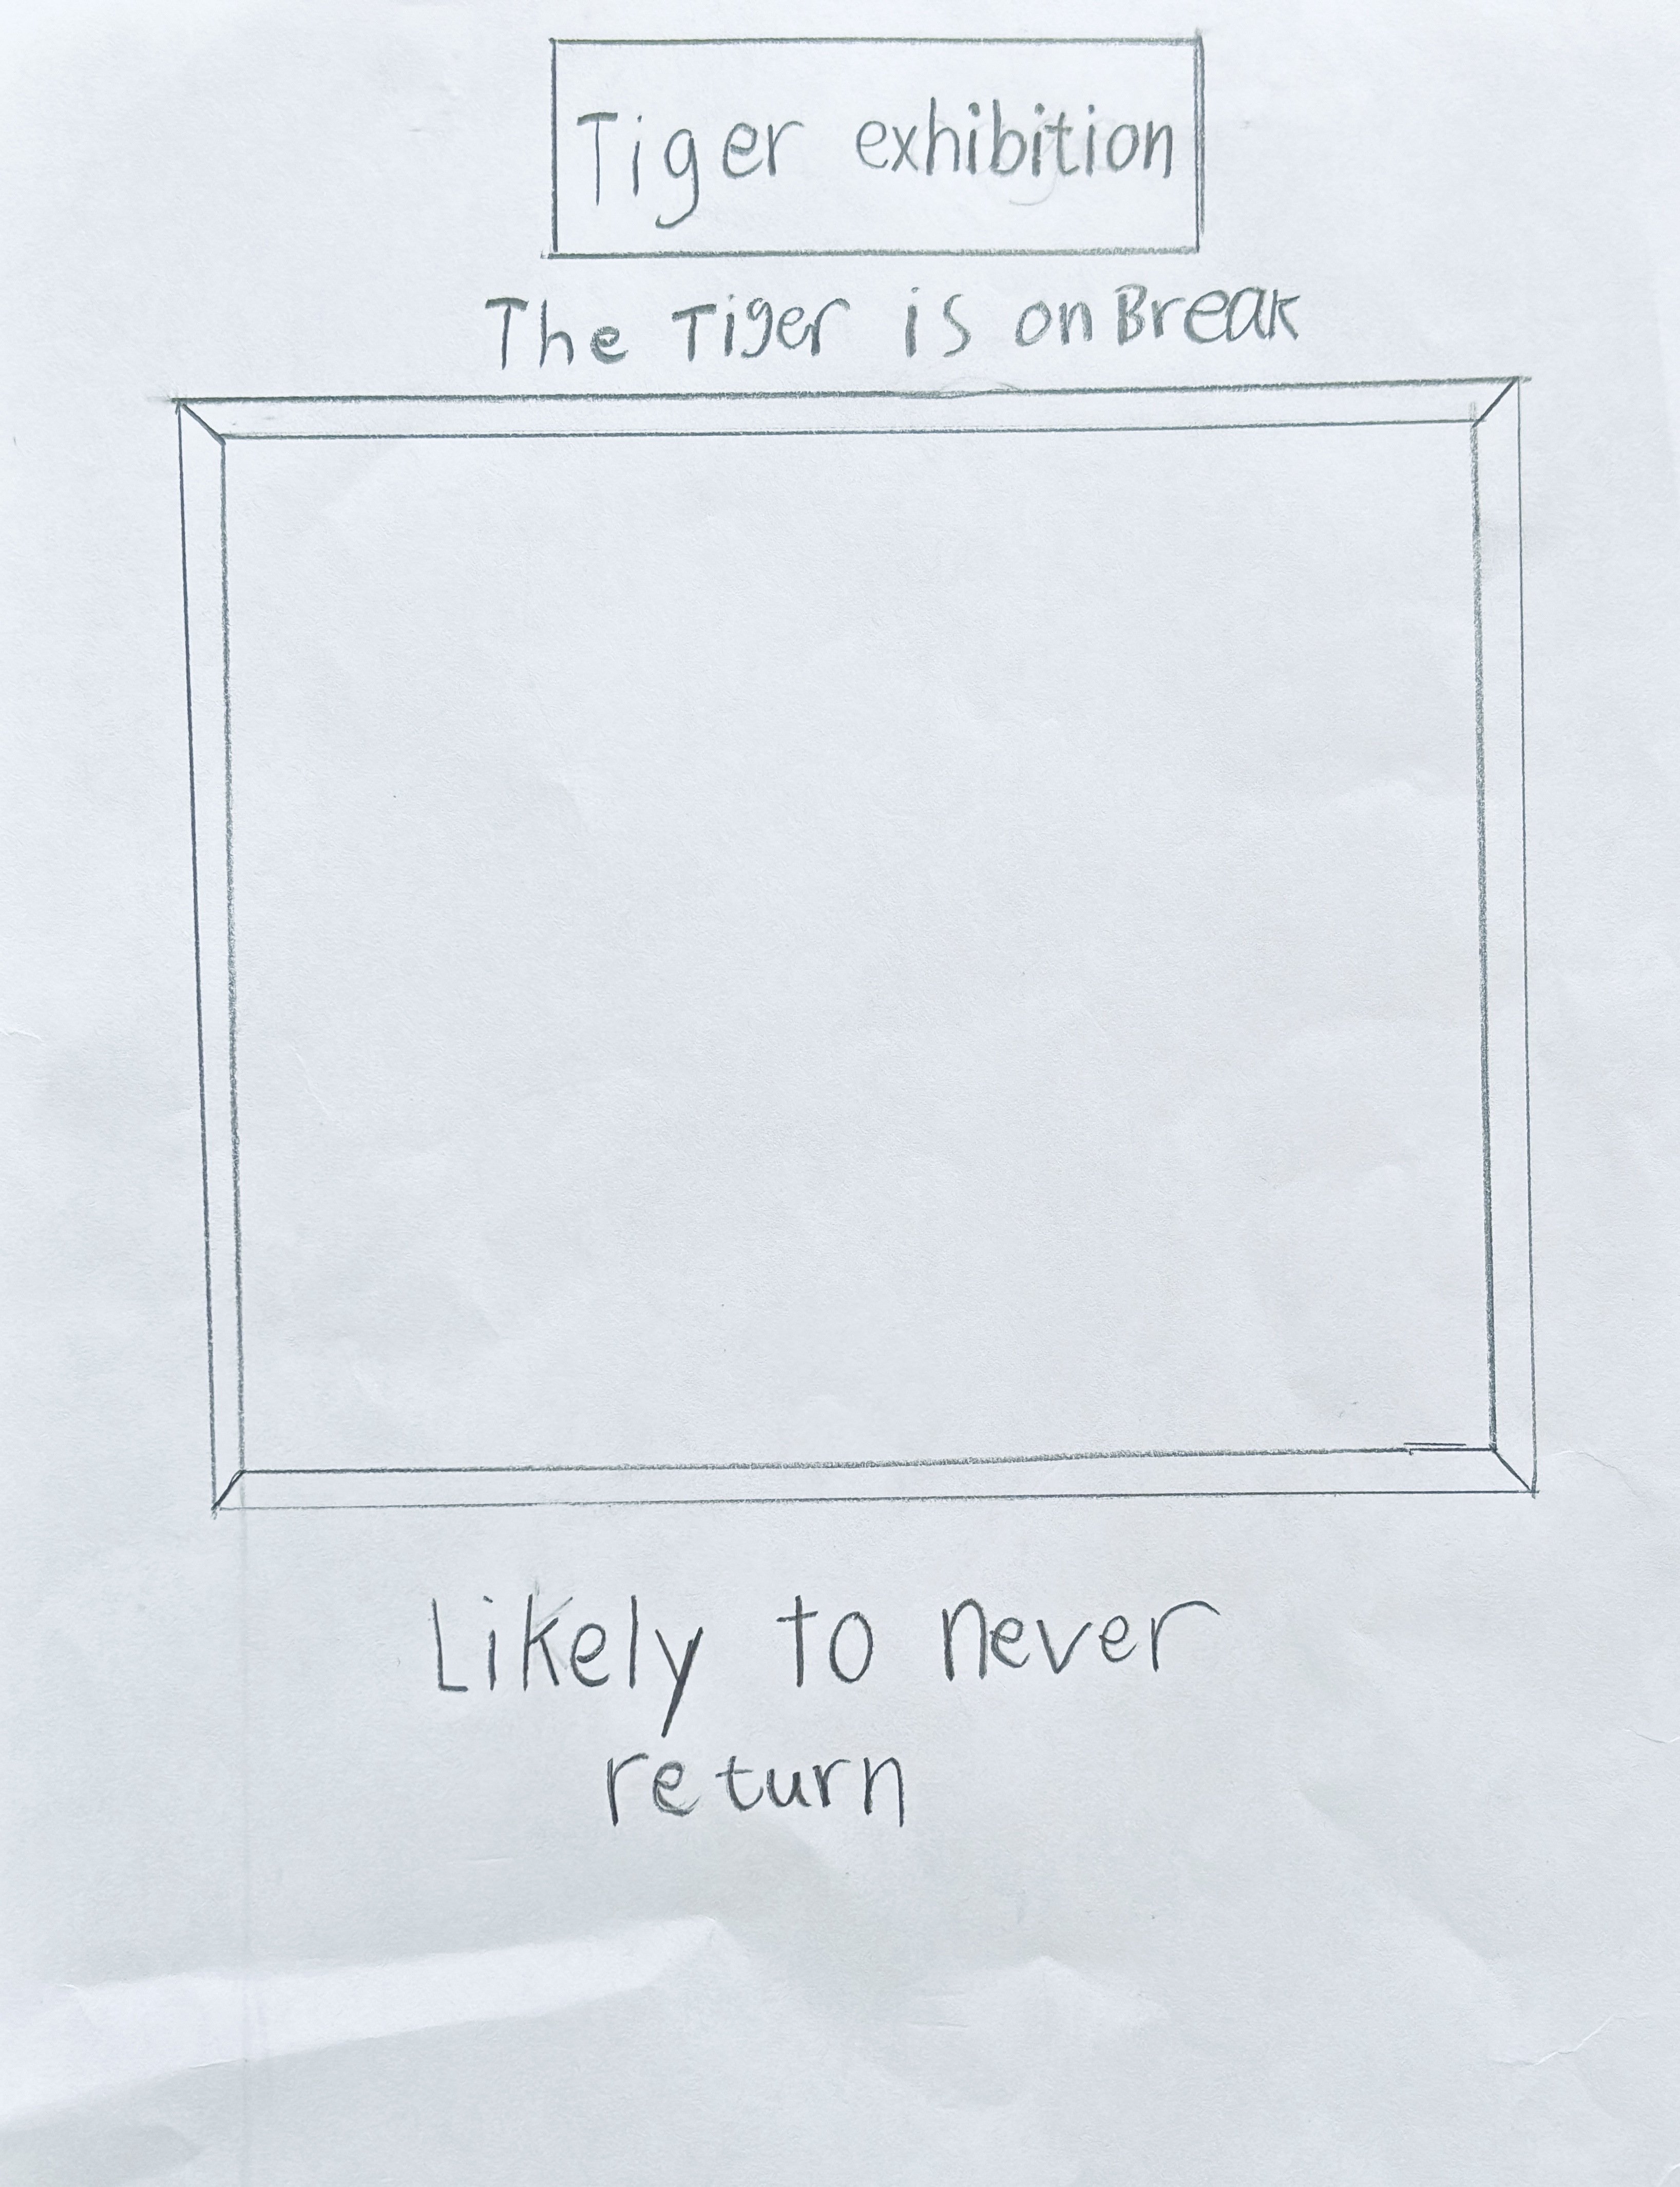 Tiger exhibition
The Tiger is on Break
Likely to never
return